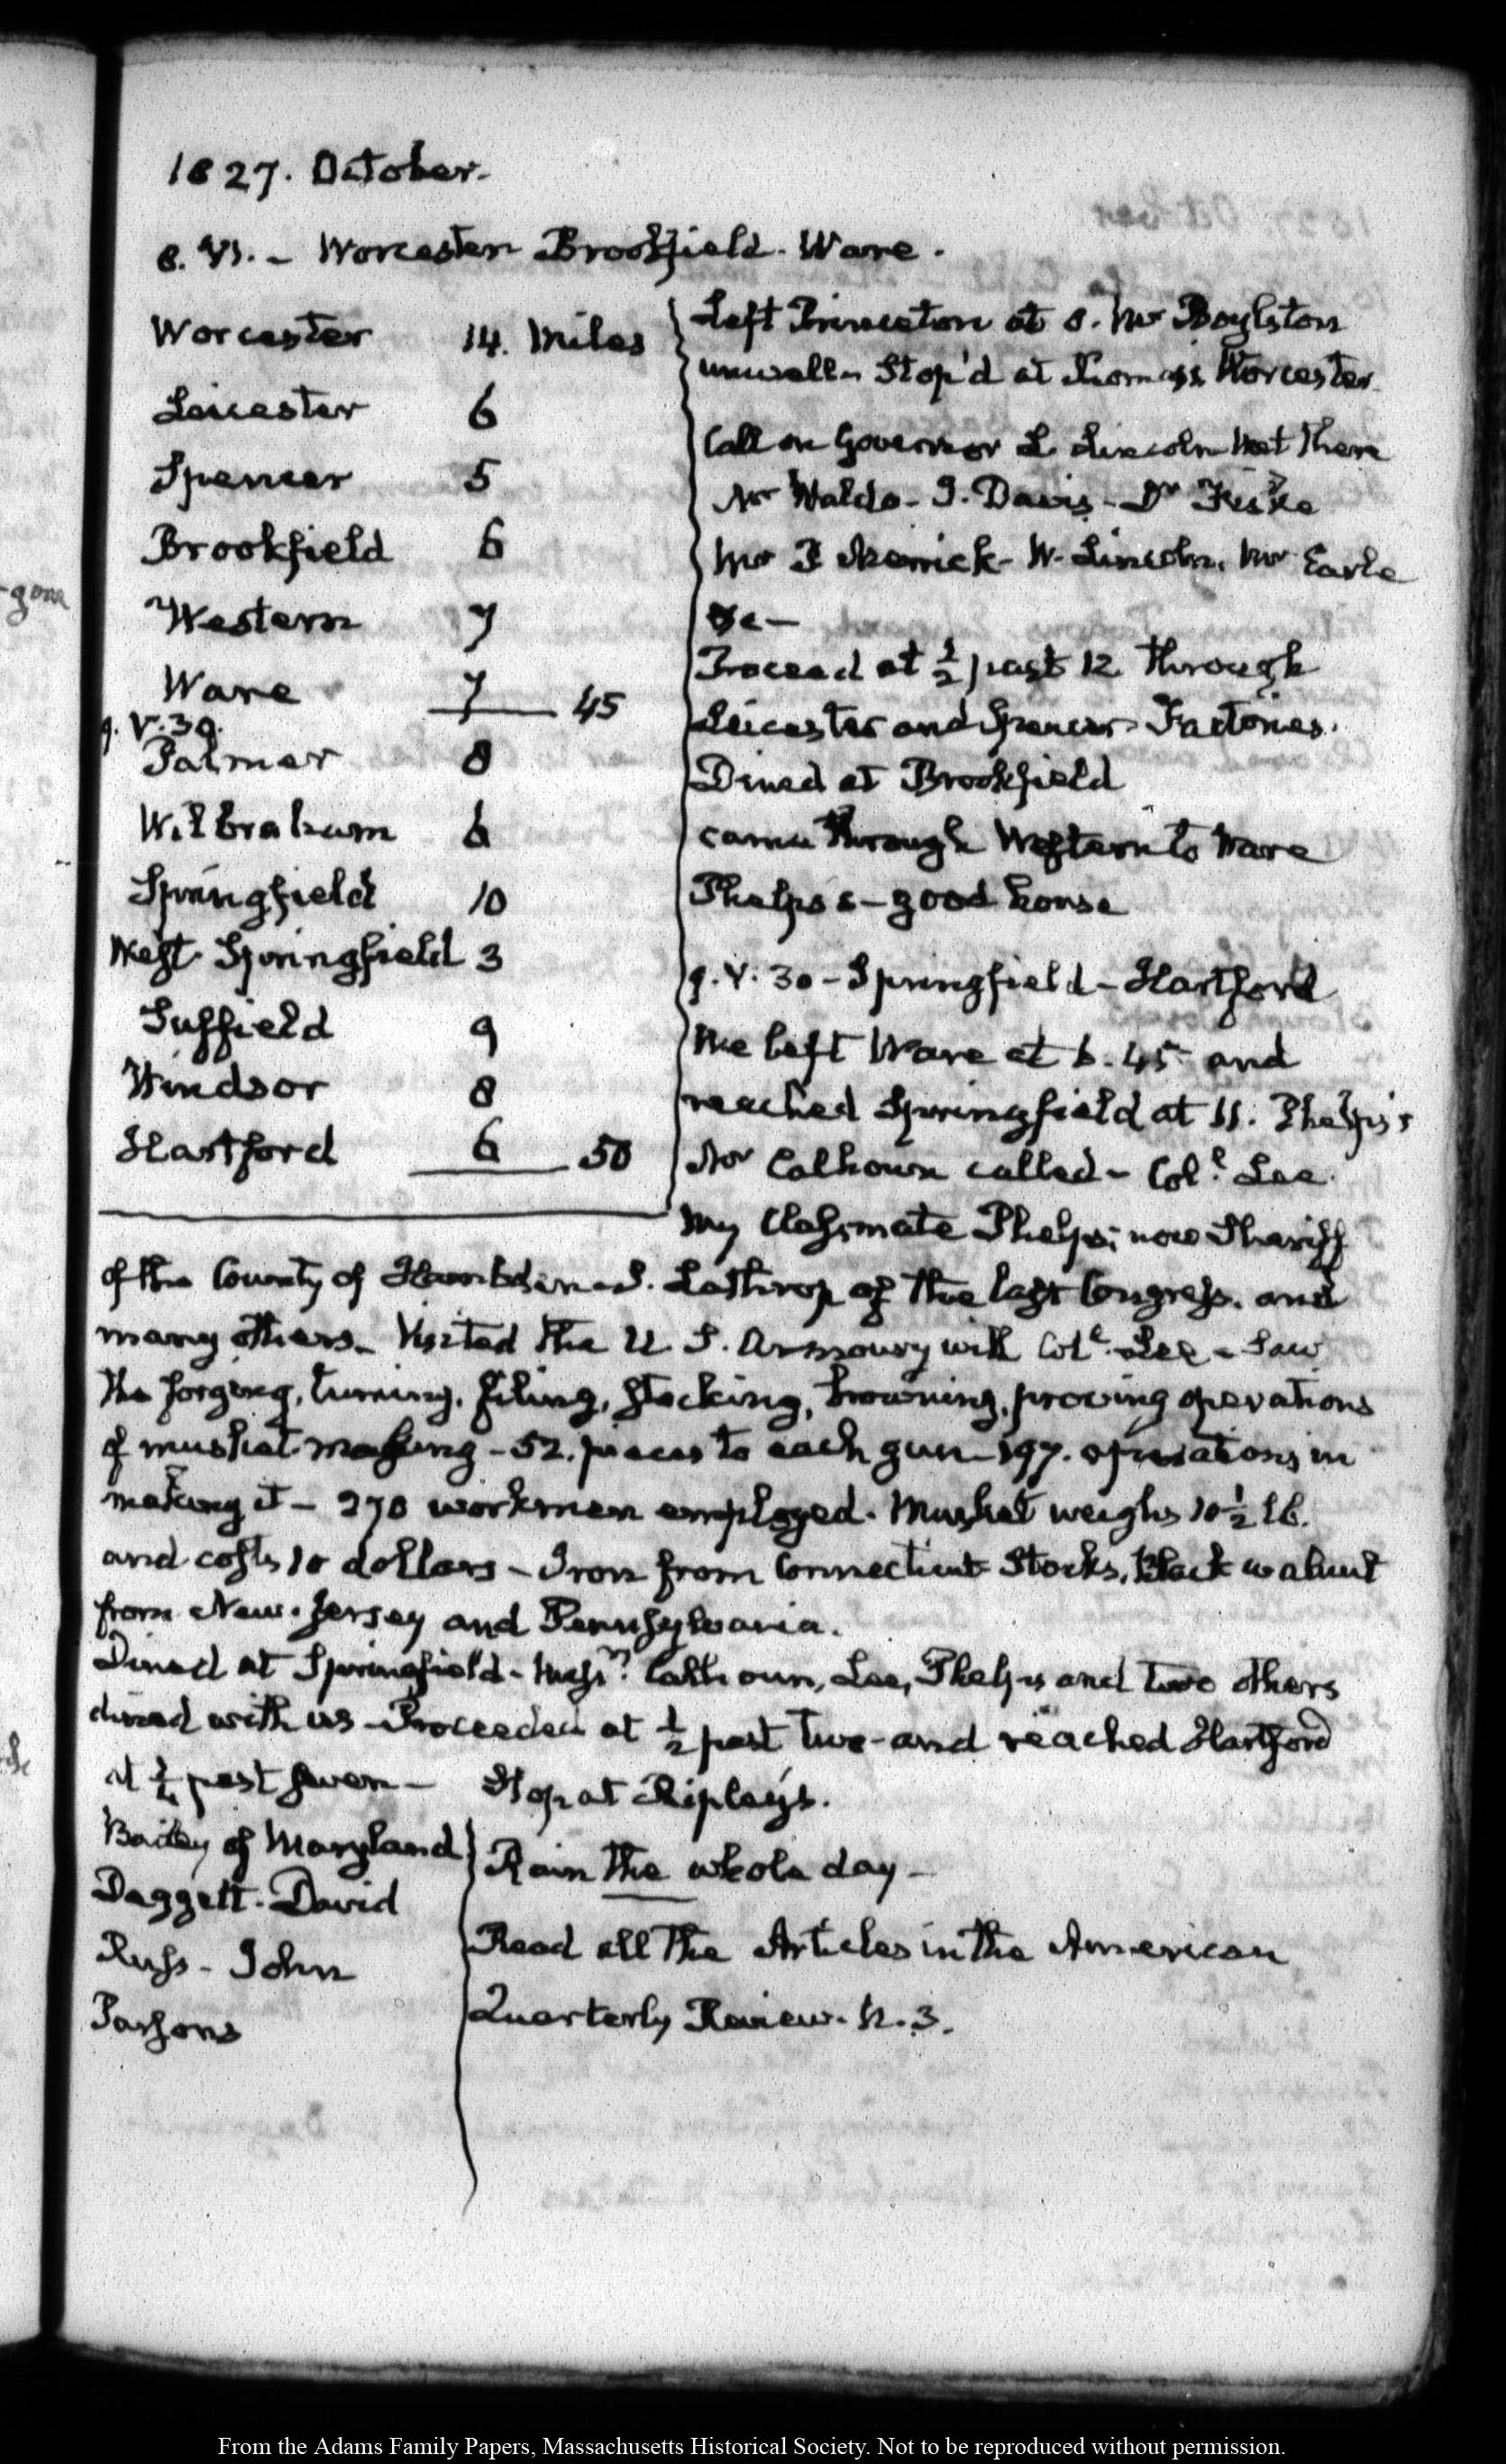 1827. October.
8. VI. – Worcester Brookfield. Ware.
Worcester 14. Miles
Leicester 6
Spencer 5
Brookfield 6
Western 7
Ware 7 — 45
9. V. 30.
Palmer 8
Wilbraham 6
Springfield 10
West Springfield 3
Suffield 9
Windsor 8
Hartford 6 — 50
Left Princeton at 8. Mr Boylston
unwell – Stop'd at Thomas's Worcester.
Call on Governor L Lincoln Met there
Mr Waldo – J. Davis – Dr Fiske
Mr Merrick – W. Lincoln. Mr Earle
&c —
Proceed at ½ past 12 through
Leicester and Spencer – Factories.
Dined at Brookfield
came through Western to Ware
Phelps's – good house
9. V. 30 – Springfield – Hartford
We left Ware at 6. 45 and
reached Springfield at 11. Phelps's
Mr Calhoun called – Coll. Lee.
My Classmate Phelps; now Sheriff
of the County of Hambden – S. Lathrop of the last Congress. and
many others – Visited the U. S. Armoury with Coll. Lee – Saw
the forging, turning, filing, stocking, browning, proving operations
of musket making – 52. pieces to each gun – 197. operations in
making it – 270 workmen employed. Musket weighs 10½ lb.
and costs 10 dollars – Iron from Connecticut Stocks, Black walnut
from New-Jersey and Pennsylvania.
Dined at Springfield – Messrs. Calhoun, Lee, Phelps and two others
dined with us – Proceeded at ½ past two – and reached Hartford
at ½ past seven — Stop at Ripley's.
Bailey of Maryland
Daggett. David
Russ – John
Parsons
Rain the whole day –
Read all the Articles in the American
Quarterly Review. N. 3.
From the Adams Family Papers, Massachusetts Historical Society. Not to be reproduced without permission.